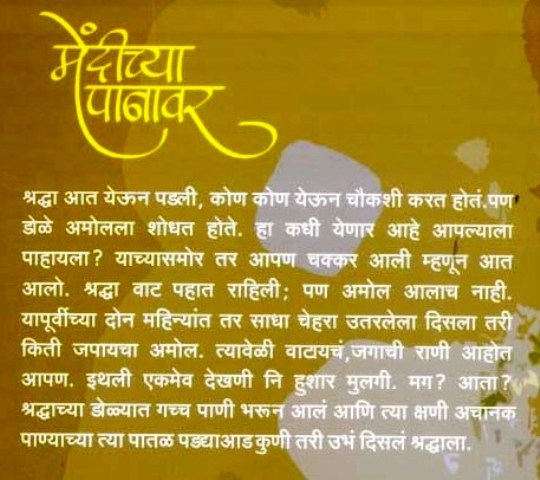 मेंदीच्या
पानावर
श्रद्धा आत येऊन पडली, कोण कोण येऊन चौकशी करत होतं.पण
डोळे अमोलला शोधत होते. हा कधी येणार आहे आपल्याला
पाहायला? याच्यासमोर तर आपण चक्कर आली म्हणून आत
आलो. श्रद्धा वाट पहात राहिली; पण अमोल आलाच नाही.
यापूर्वीच्या दोन महिन्यांत तर साधा चेहरा उतरलेला दिसला तरी
किती जपायचा अमोल. त्यावेळी वाटायचं,जगाची राणी आहोत
आपण. इथली एकमेव देखणी नि हुशार मुलगी. मग? आता?
श्रद्धाच्या डोळ्यात गच्च पाणी भरून आलं आणि त्या क्षणी अचानक
पाण्याच्या त्या पातळ पड्याआड कुणी तरी उभं दिसलं श्रद्धाला.